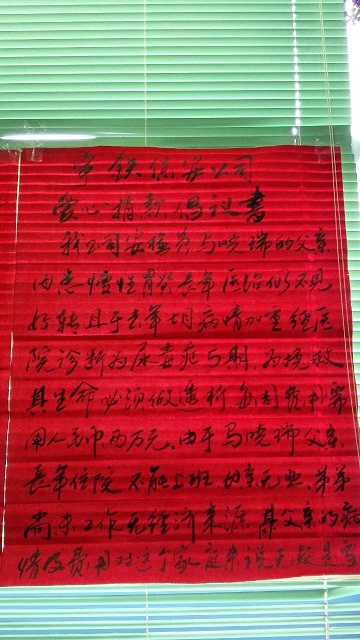 宁铁保安公司
爱心捐款倡议书
我公司安检员马晓瑞的父亲
因患慢性肾炎长年医治仍不见
好转且于去年七月病情加重经医
院诊断为尿毒症5期,为挽救
其生命必须做透析,每周费用需
用人民币两万元。由于马晓瑞父亲
长年住院不能上班,母亲无业,弟弟
尚未工作无经济来源,其父亲的病
情及费用对这个家庭来说无疑是雪